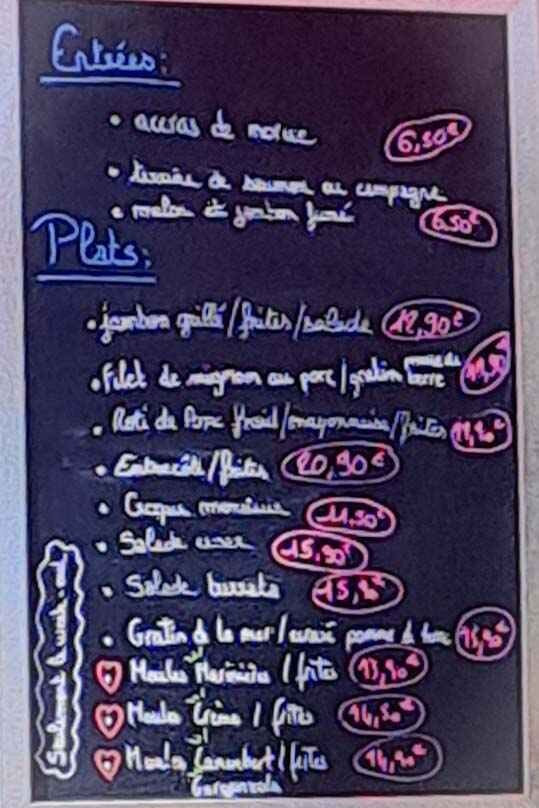 Entrées:
• accras de morue 6,50€
• terrine de saumon ou campagne
• melon et jambon fumé 6,50€
Plats:
• jambon grillé/frites/salade 12,90€
• Filet de mignon au porc/gratin pomme de terre
• Roti de Porc froid/mayonnaise/frites
• Entrecôte/frites 20,90€
• Croque monsieur 11,50€
• Salade 15,90€
• Salade burrata
• Gratin de la mer/écrasé pomme de terre
• Moules Marinière / frites 13,90€
• Moules Crème / frites 14,50€
• Moules Camembert / frites 14,90€
Gorgonzola
Seulement le week-end